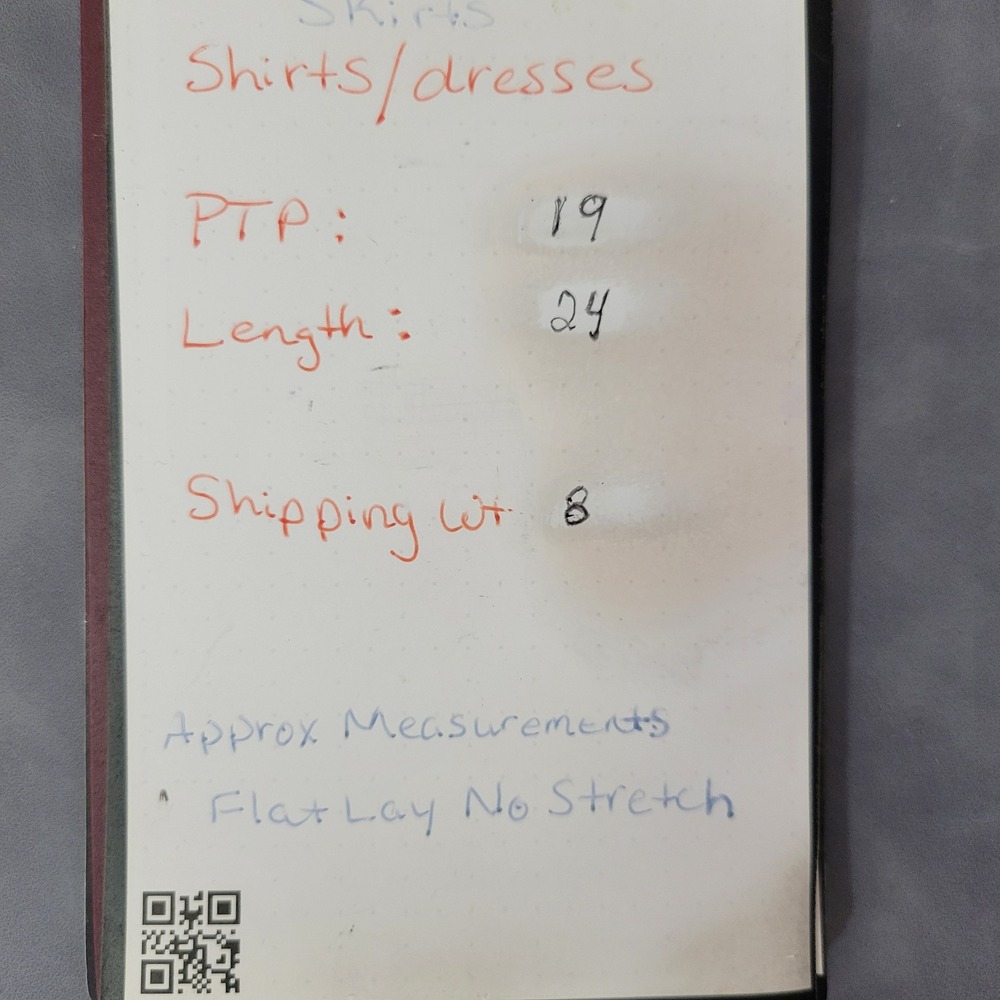 Skirts
Shirts/dresses
PTP: 19
Length: 24
Shipping Wt. 8
Approx Measurements
Flat Lay No Stretch